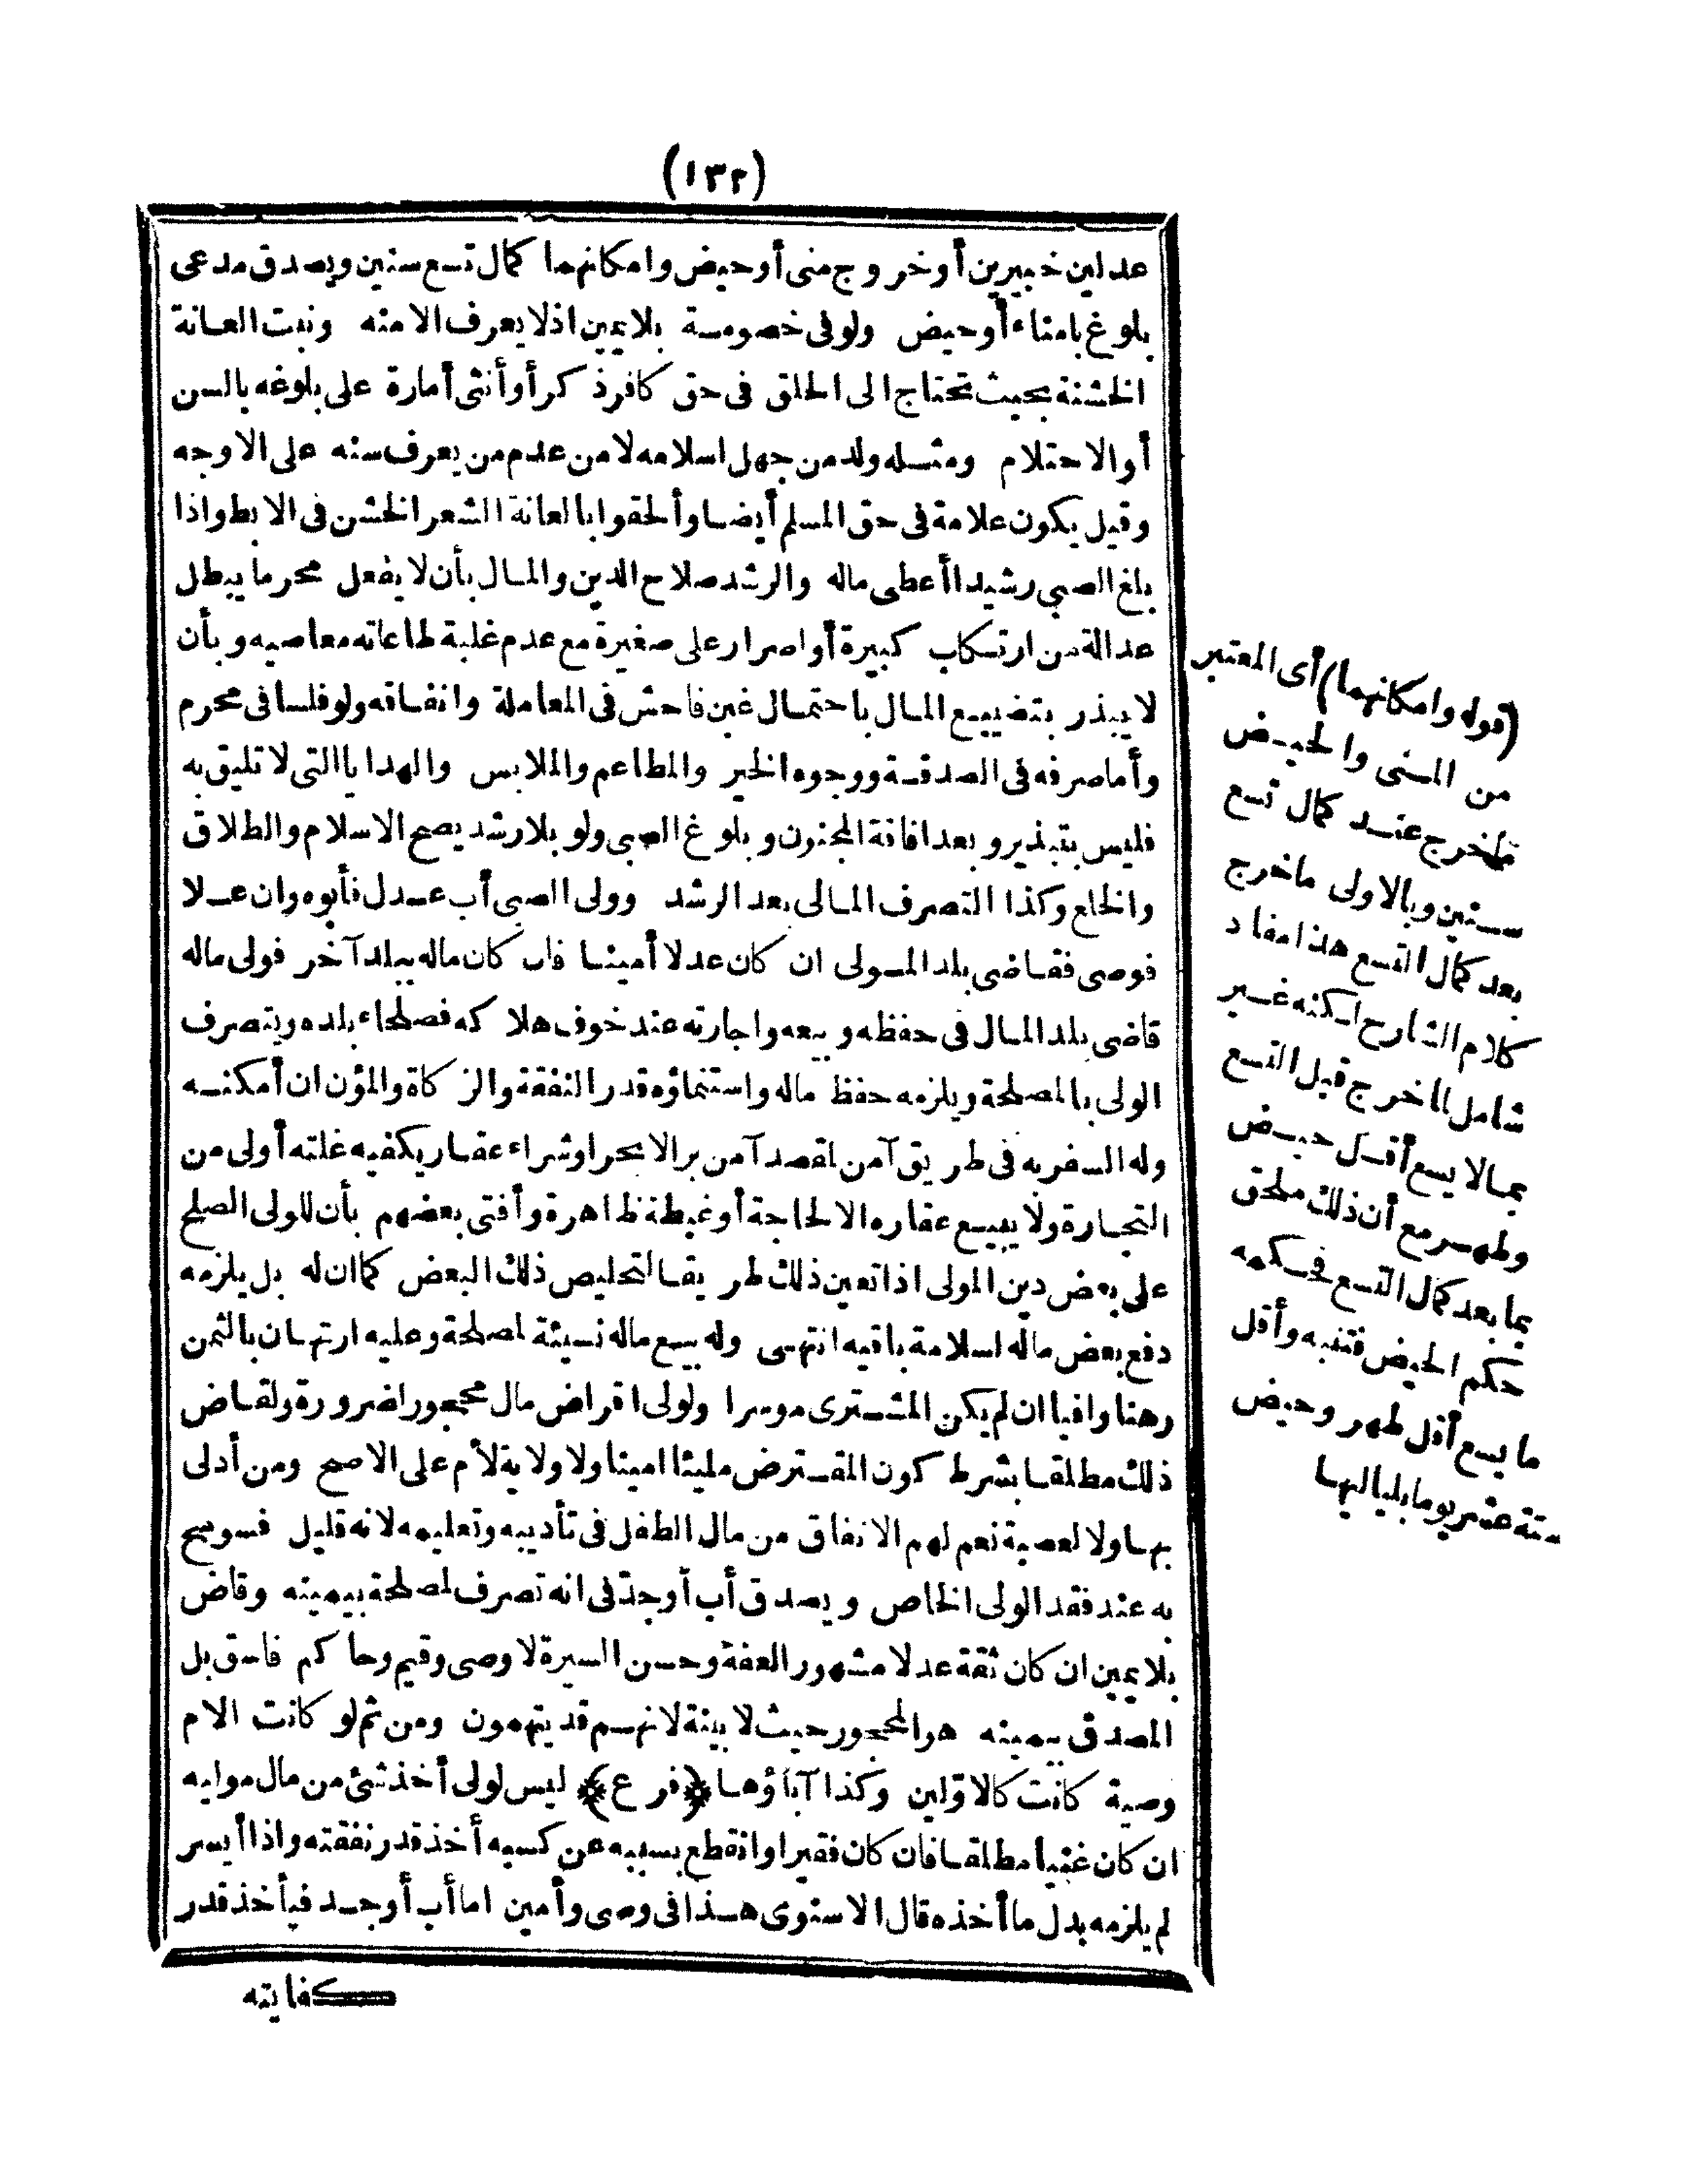 (١٣٢)
عدلين خبيرين أو خروج منى أو حيض وامكانهما كمال تسع سنين ويصدق مدعى
بلوغ بامناء أو حيض ولو فى خصومة بلا يمين اذ لا يعرف الا منه ونبت العانة
الخشنة بحيث تحتاج الى الحلق فى حق كافر ذكر أو أنثى أمارة على بلوغه بالسن
أو الاحتلام ومثله ولد من جهل اسلامه لا من عدم من يعرف سنه على الاوجه
وقيل يكون علامة فى حق المسلم أيضا وألحقوا بالعانة الشعر الخشن فى الابط واذا
بلغ الصبي رشيدا أعطى ماله والرشد صلاح الدين والمال بأن لا يفعل محرما يبطل
عدالة من ارتكاب كبيرة أو اصرار على صغيرة مع عدم غلبة طاعاته معاصيه وبأن
لا يبذر بتضييع المال باحتمال غبن فاحش فى المعاملة وانفاقه ولو فلسا فى محرم
وأما صرفه فى الصدقة ووجوه الخير والمطاعم والملابس والهدايا التى لا تليق به
فليس بتبذير وبعد افاقة المجنون وبلوغ الصبى ولو بلا رشد يصح الاسلام والطلاق
والخلع وكذا التصرف المالى بعد الرشد وولى الصبى أب عدل فأبوه وان علا
فوصى فقاضى بلد المولى ان كان عدلا أمينا فان كان ماله ببلد آخر فولى ماله
قاضى بلد المال فى حفظه وبيعه واجارته عند خوف هلاكه فصلحاء بلده ويتصرف
الولى بالمصلحة ويلزمه حفظ ماله واستنماؤه قدر النفقة والزكاة والمؤن ان أمكنه
وله السفر به فى طريق آمن لقصد آمن برا لا بحرا وشراء عقار يكفيه غلته أولى من
التجارة ولا يبيع عقاره الا لحاجة أو غبطة ظاهرة وأفتى بعضهم بأن للولى الصلح
على بعض دين المولى اذا تعين ذلك طريقا لتخليص ذلك البعض كما ان له بل يلزمه
دفع بعض ماله لسلامة باقيه انتهى وله بيع ماله نسيئة لمصلحة وعليه ارتهان بالثمن
رهنا وافيا ان لم يكن المشترى موسرا ولولى اقراض مال محجور لضرورة ولقاض
ذلك مطلقا بشرط كون المقترض مليئا امينا ولا ولاية لأم على الاصح ومن أدلى
بها ولا لعصبة نعم لهم الانفاق من مال الطفل فى تأديبه وتعليمه لانه قليل فسومح
به عند فقد الولى الخاص ويصدق أب أو جد فى انه تصرف لمصلحة بيمينه وقاض
بلا يمين ان كان ثقة عدلا مشهور العفة وحسن السيرة لا وصى وقيم وحاكم فاسق بل
المصدق بيمينه هو المحجور حيث لا بينة لانهم قد يتهمون ومن ثم لو كانت الام
وصية كانت كالاولين وكذا آباؤها ﴿فرع﴾ ليس لولى أخذ شئ من مال موليه
ان كان غنيا مطلقا فان كان فقيرا وانقطع بسببه عن كسبه أخذ قدر نفقته واذا أيسر
لم يلزمه بدل ما أخذه قال الاسنوى هذا فى وصى وأمين اما أب أو جد فيأخذ قدر
كفايته
(قوله وامكانهما) أى المعتبر
من المنى والحيض
ما خرج عند كمال تسع
سنين وبالاولى ما خرج
بعد كمال التسع هذا مفاد
كلام الشارح لكنه غير
شامل لما خرج قبل التسع
بما لا يسع أقل حيض
وطهر مع أن ذلك ملحق
بما بعد كمال التسع فحكمه
حكم الحيض فتنبه وأقل
ما يسع أقل طهر وحيض
ستة عشر يوما بلياليها